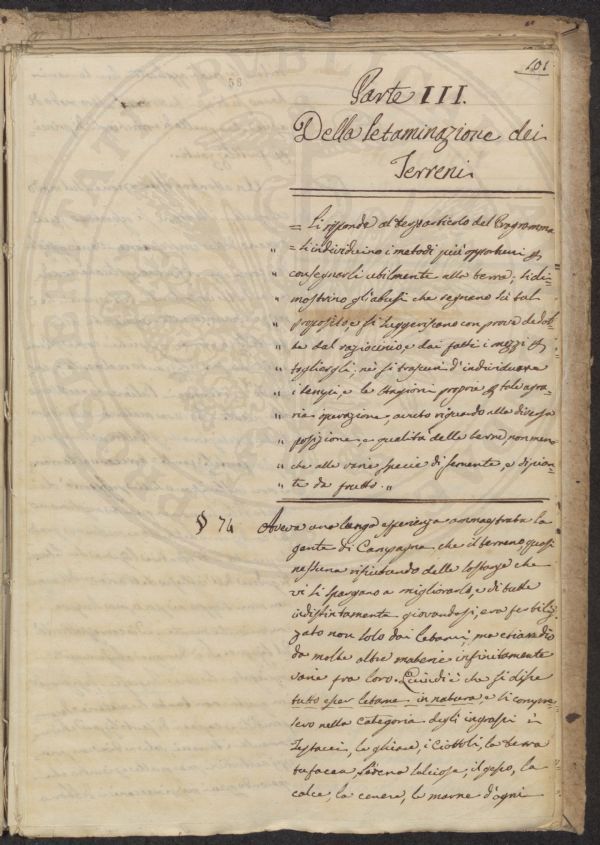 101
58
Parte III.
Della letaminazione dei
Terreni
= Si risponde al terzo articolo del Programma
„ = Si individuino i metodi più opportuni p
„ consegnarli utilmente alla terra; si di-
„ mostrino gli abusi che regnano su tal
„ proposito, e si suggeriscano con prove dedot-
„ te dal raziocinio, e dai fatti i mezzi p
„ togliergli; nè si trascuri d'individuare
„ i tempi, e le stagioni proprie p tale agra-
„ ria operazione, avuto riguardo alla diversa
„ posizione, e qualità della terra, non meno
„ che alle varie specie di semente, e di pian-
„ te da frutto. „
§ 74 Aveva una lunga esperienza ammaestrata la
gente di Campagna, che il terreno quasi
nessuna rifiutando delle sostanze che
vi si spargono a migliorarlo, e di tutte
indistintamente giovandosi, era fertiliz-
zato non solo dai letami, ma eziandio
da molte altre materie infinitamente
varie fra loro. Quindi è che si disse
tutto esser letame in natura, e si compre-
sero nella categoria degli ingrassi i
Testacei, le ghiare, i Ciottoli, la terra
tufacea, l'arena calciosa, il gesso, la
calce, la cenere, le marne d'ogni